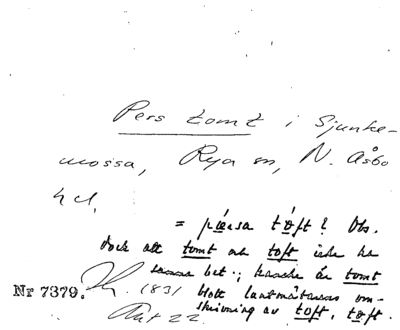 Pers tomt i Sjunke-
mossa, Rya sn, N. Åsbo
hd.
= pæ̂rsa tôft? Obs.
dock att tomt och toft icke ha
samma bet.; kanske är tomt
Nr 7379. 1831 blott lantmätarens om-
skrivning av toft, tôft.
Akt 22